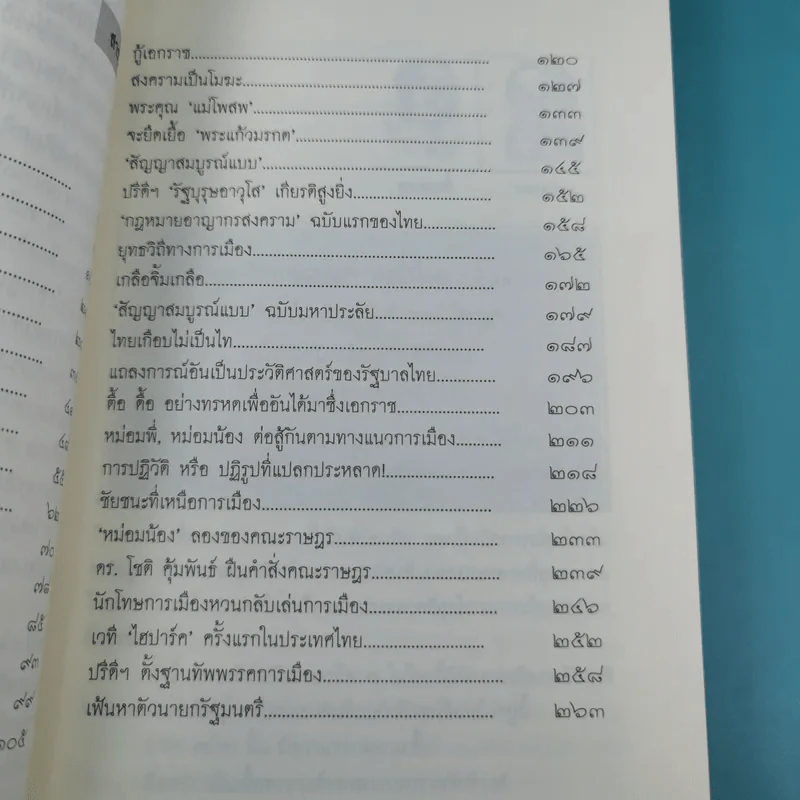 กู้เอกราช.......... ๑๒๐
สงครามเป็นโมฆะ.......... ๑๒๗
พระคุณ ‘แม่โพสพ’.......... ๑๓๓
จะยึดเยื้อ ‘พระแก้วมรกต’.......... ๑๓๙
‘สัญญาสมบูรณ์แบบ’.......... ๑๔๕
ปรีดีฯ ‘รัฐบุรุษอาวุโส’ เกียรติสูงยิ่ง.......... ๑๕๒
‘กฎหมายอาญากรสงคราม’ ฉบับแรกของไทย.......... ๑๕๘
ยุทธวิถีทางการเมือง.......... ๑๖๕
เกลือจิ้มเกลือ.......... ๑๗๒
‘สัญญาสมบูรณ์แบบ’ ฉบับมหาประลัย.......... ๑๗๙
ไทยเกือบไม่เป็นไท.......... ๑๘๗
แถลงการณ์อันเป็นประวัติศาสตร์ของรัฐบาลไทย.......... ๑๙๖
ตื้อ ตื้อ อย่างทรหดเพื่ออันได้มาซึ่งเอกราช.......... ๒๐๓
หม่อมพี่, หม่อมน้อง ต่อสู้กันตามทางแนวการเมือง.......... ๒๑๑
การปฏิวัติ หรือ ปฏิรูปที่แปลกประหลาด!.......... ๒๑๘
ชัยชนะที่เหนือการเมือง.......... ๒๒๖
‘หม่อมน้อง’ ลองของคณะราษฎร.......... ๒๓๓
ดร. โชติ คุ้มพันธ์ ฝืนคำสั่งคณะราษฎร.......... ๒๓๙
นักโทษการเมืองหวนกลับเล่นการเมือง.......... ๒๔๖
เวที ‘ไฮปาร์ค’ ครั้งแรกในประเทศไทย.......... ๒๕๒
ปรีดีฯ ตั้งฐานทัพพรรคการเมือง.......... ๒๕๘
เฟ้นหาตัวนายกรัฐมนตรี.......... ๒๖๓
๕๕
๖๒
๗๐
๗๘
๘๕
๙๓
๙๙
๑๐๕